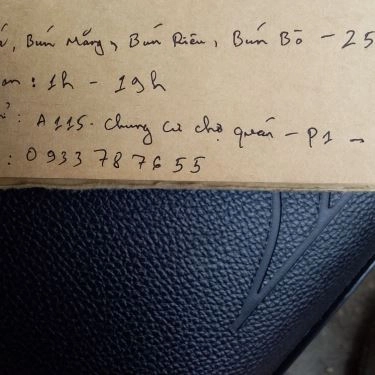 , Bún Măng, Bún Riêu, Bún Bò - 25
an : 1h - 19h
: A115. Chung cư chợ quán - P1 -
: 0933 787655